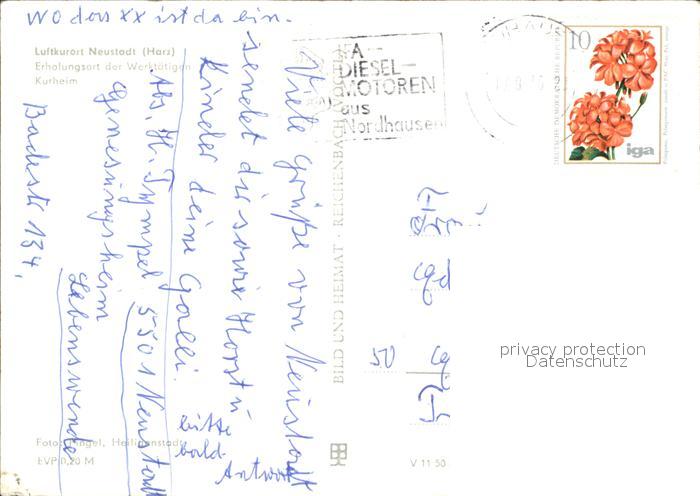 wo das xx ist da ein.
Luftkurort Neustadt (Harz)
Erholungsort der Werktätigen
Kurheim
Viele Grüße von Neustadt
sendet dir sowie Horst u
Kinder deine Galli.
bitte
bald
Antwort
Abs. H. Tympel 5501 Neustadt
Genesungsheim
Lebenswende
Badestr 134.
Foto: Pingel, Heiligenstadt
EVP 0,20 M
BILD UND HEIMAT · REICHENBACH
V 11 50
IFA—
DIESEL—
MOTOREN
aus
Nordhausen
10
DEUTSCHE DEMOKRATISCHE REPUBLIK
iga
50
privacy protection
Datenschutz